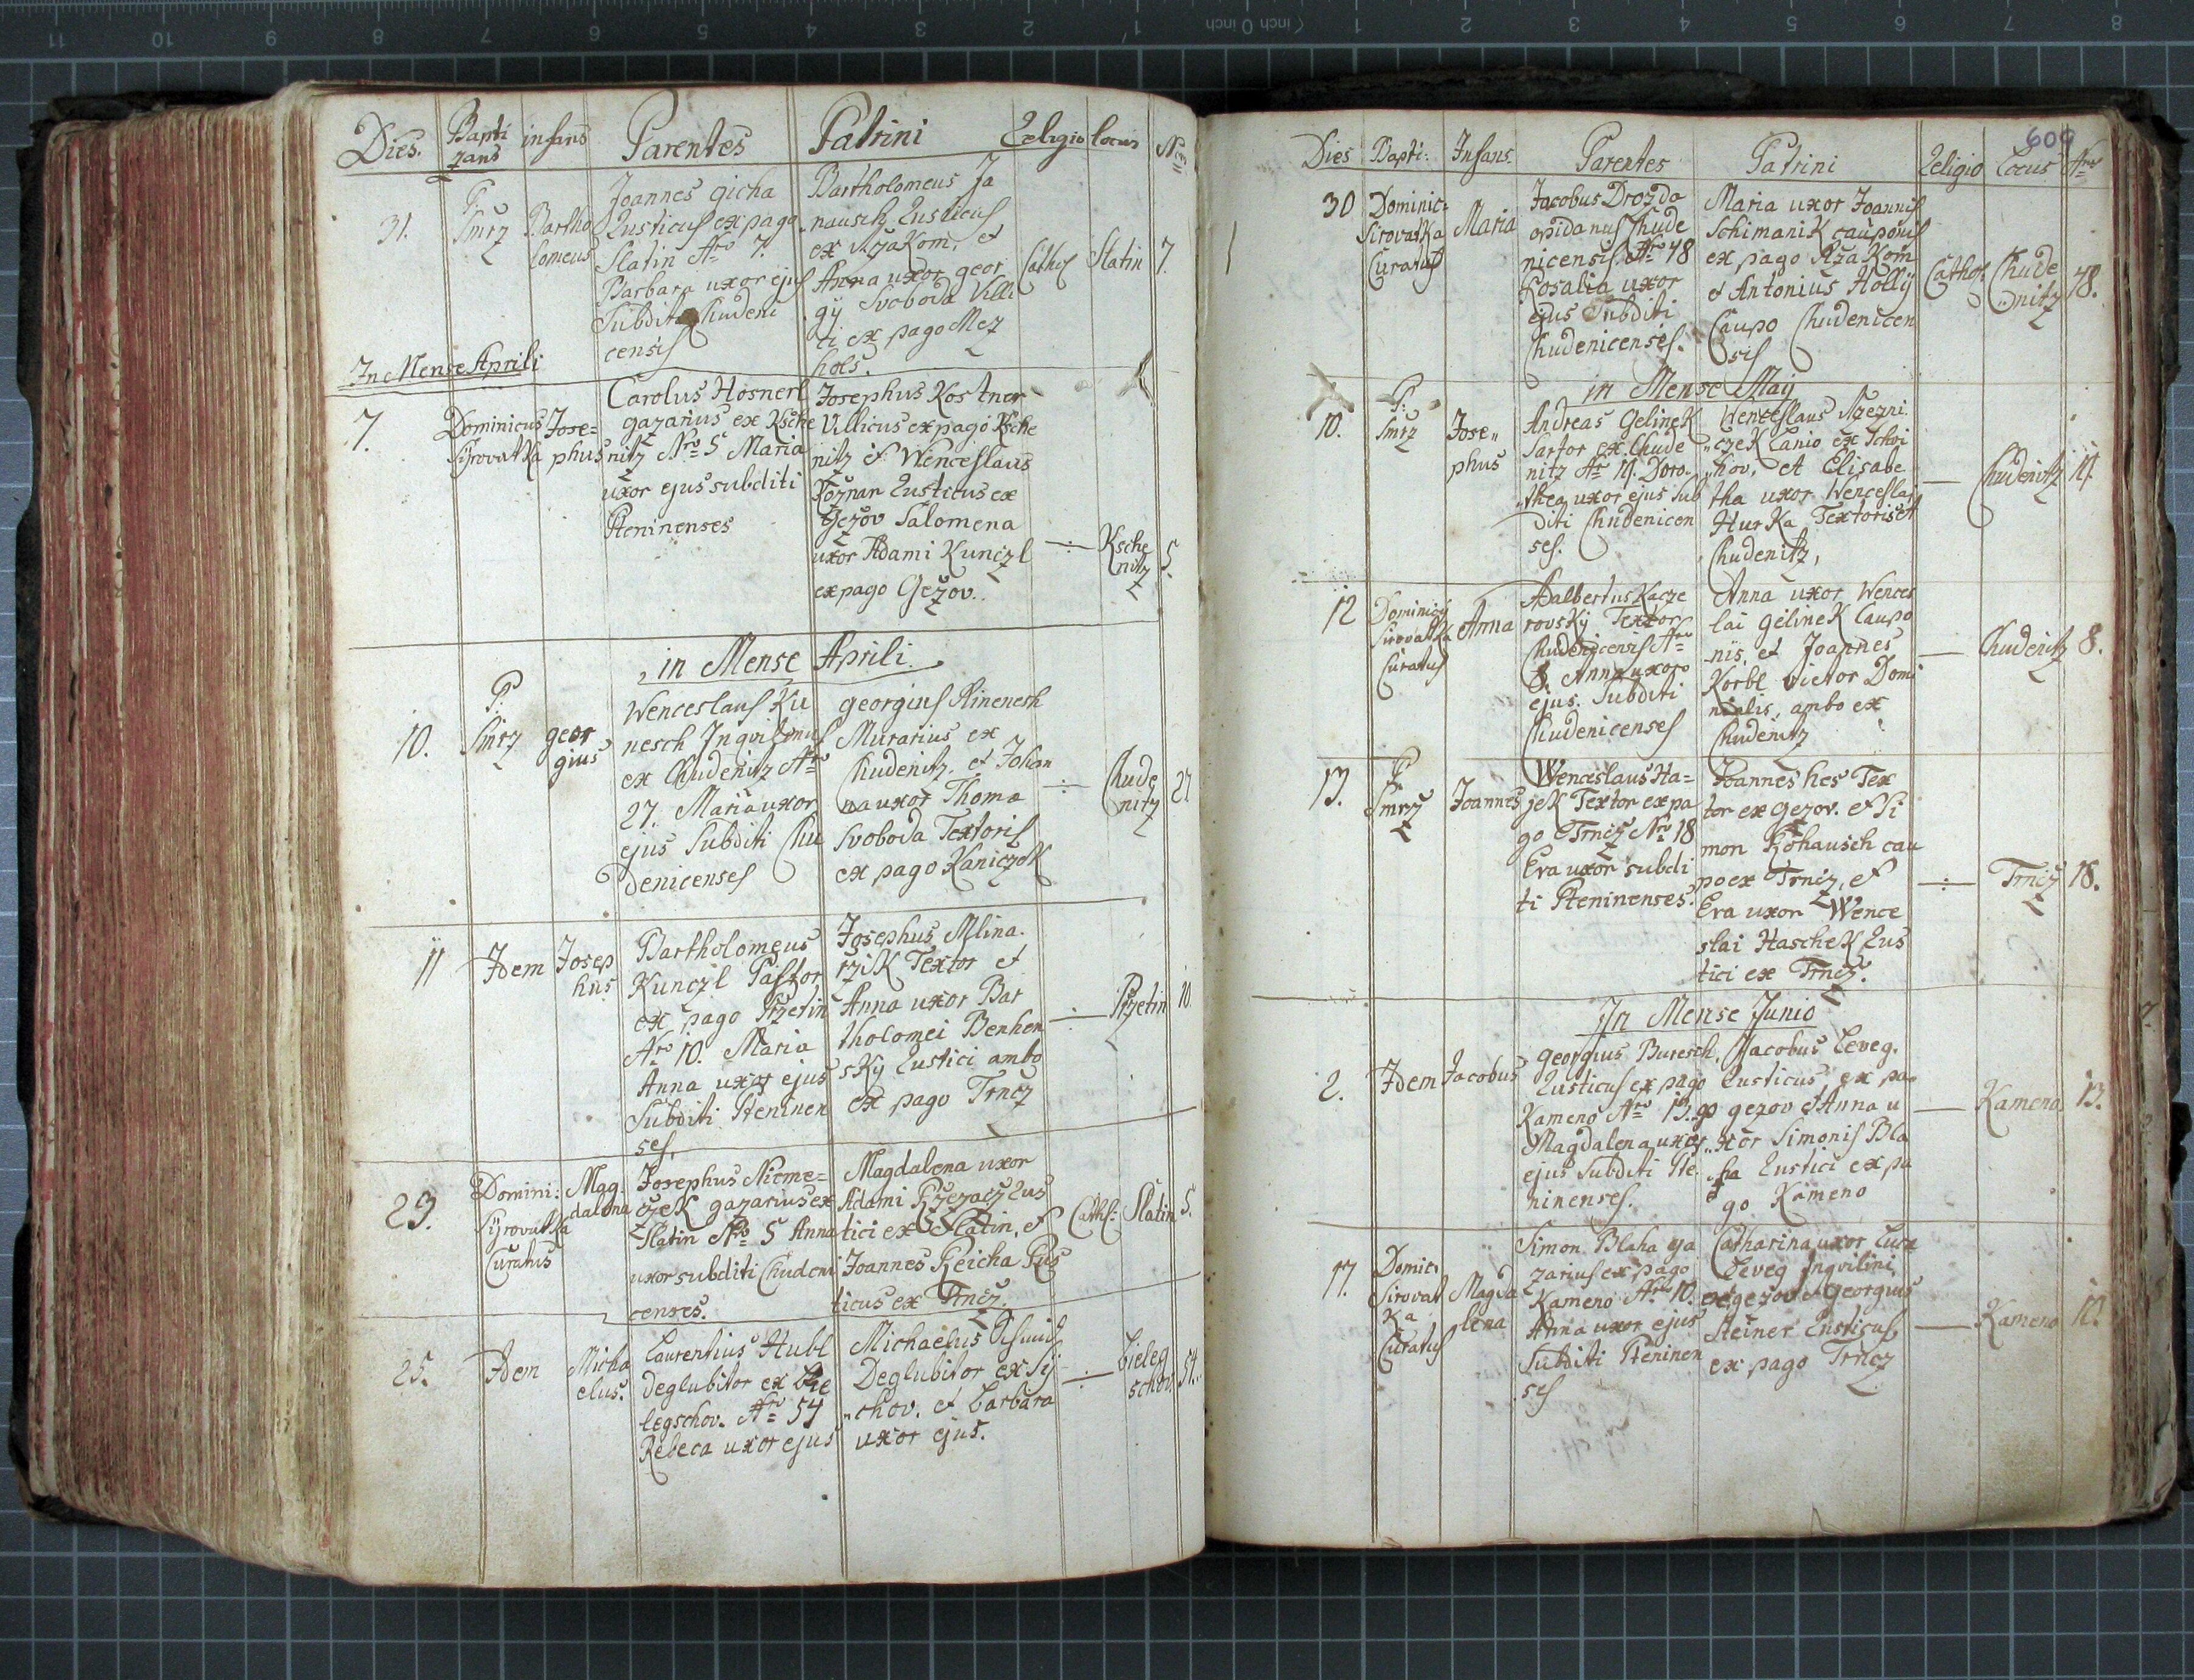 Dies. Bapti infans Parentes Patrini Religio locus Nro
zans
31. P. Smrz Bartho lomeus
Joannes Gicha
Rusticus ex pago
Slatin Nro 7.
Barbara uxor ejus
Subditi Chudeni
censis
Bartholomeus Ja
nausch Rusticus
ex Rzakom, et
Anna uxor geor
gÿ Svoboda Villi
ci ex pago Mez
hols.
Cathol Slatin 7.
In Mense Aprili
7. Dominicus Jose=
Sÿrovatka phus
Carolus Hosnerl
gazarius ex Ksche
nitz Nro 5 Maria
uxor ejus subditi
Pteninenses
Josephus Kostner
Villicus ex pago Ksche
nitz et Wenceslaus
Požnar Rusticus ex
Gezov Salomena
uxor Adami Kunczl
ex pago Gezov.
Ksche
nitz 5.
in Mense Aprili
10. P. Smrz geor
gius
Wenceslaus Ku
nesch Inqvilinus
ex Chudenitz Nro
27. Maria uxor
ejus Subditi Chu
denicenses
georgius
Murarius ex
Chudenitz, et Johan
na uxor Thoma
Svoboda Textoris
ex pago Kaniczok
Chude
nitz 27
11 Idem Josep
hus
Bartholomeus
Kunczl Pastor
ex pago Przetin
Nro 10. Maria
Anna uxor ejus
Subditi Pteninen
ses.
Josephus Mlina.
rzik Textor et
Anna uxor Bar
tholomei Benhen
sky Rustici ambo
ex pago Trncz
Przetin 10.
23. Domini: Mag
Sÿrovatka dalena
Curatus
Josephus Nieme=
czek gazarius ex
Slatin Nro 5 Anna
uxor subditi Chudeni
censes.
Magdalena uxor
Adami Rus
tici ex Slatin, et
Joannes Reicha Rus
ticus ex Trncz.
Cathol: Slatin 5.
25. Idem Micha
elus.
Laurentius Hubl
deglubitor ex Bie
legschov. Nro 54
Rebeca uxor ejus
Michaelus
Deglubitor ex Sÿ
chov. et Barbara
uxor ejus.
Bieleg
schov. 54.
606
Dies Bapti: Infans. Parentes Patrini Religio Locus Nro
30 Dominic: Maria
Sirovatka
Curatus
Jacobus Drozda
opidanus Chude
nicensis Nro 48
Rosalia uxor
ejus Subditi
Chudenicenses.
Maria uxor Joannis
Schimanik cauponis
ex pago Rzakom
et Antonius Hollÿ
Caupo Chudenicen
sis
Cathol. Chude
nitz 48.
in Mense Maÿ
10. P. Smrz Jose„
phus
Andreas Gelinek
Sartor ex Chude
nitz Nro 11. Doro„
thea uxor ejus Sub
diti Chudenicen
ses.
Wenceslaus Rzezni
„czek Lanio ex Schvi
„hov, et Elisabe
tha uxor Wenceslai
Hurka Textoris ex
Chudenitz,
Chudenitz 11.
12 Dominicÿ Anna
Sirovatka
Curatus
Adalbertus Kacze
rovskÿ Textor
Chudenicensis Nro
8. Anna uxor
ejus. Subditi
Chudenicenses
Anna uxor Wences
lai Gelinek Caupo
nis, et Joannes
Korbl vietor Domi
nialis, ambo ex
Chudenitz
Chudenitz 8.
13. P. Smrz Joannes
Wenceslaus Ha=
jek Textor ex pa
go Trncz Nro 18
Eva uxor subdi
ti Pteninenses.
Joannes hes Tex
tor ex gezov. et Si
mon Kohausch cau
po ex Trncz, et
Eva uxor Wence
slai Haschek Rus
tici ex Trncz.
Trncz 18.
In Mense Junio
2. Idem Jacobus
Georgius Buresch.
Rusticus ex pago
Kameno Nro 13.
Magdalena uxor
ejus Subditi Pte.
ninenses.
Jacobus Leveg.
Rusticus ex pa
go gezov et Anna u
„xor Simonis Bla
ha Rustici ex pa
go Kameno
Kameno 13.
17. Domic: Magda
Sirovat lena
ka
Curatus
Simon Blaha ga
zarius ex pago
Kameno Nro 10.
Anna uxor ejus
Subditi Pteninen
ses
Catharina uxor Luca
Leveg Inqvilini
ex gezov et Georgius
Steiner Rusticus
ex pago Trncz
Kameno 10.